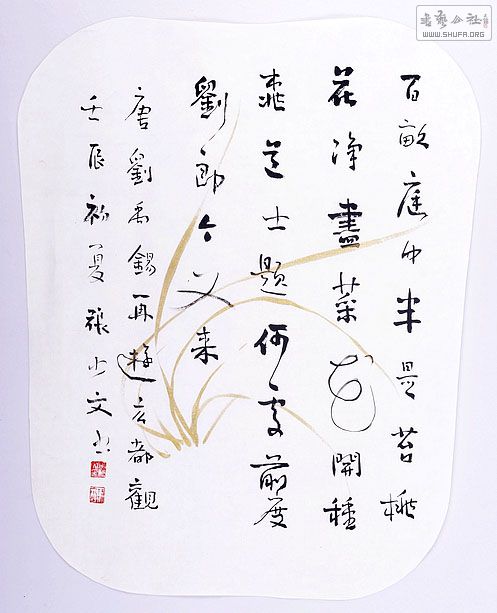 百畝庭中半是苔桃
花净盡菜花開種
桃道士題何處前度
劉郎今又来
唐劉禹錫再遊玄都觀
壬辰初夏張文书
書藝公社
WWW.SHUFA.ORG